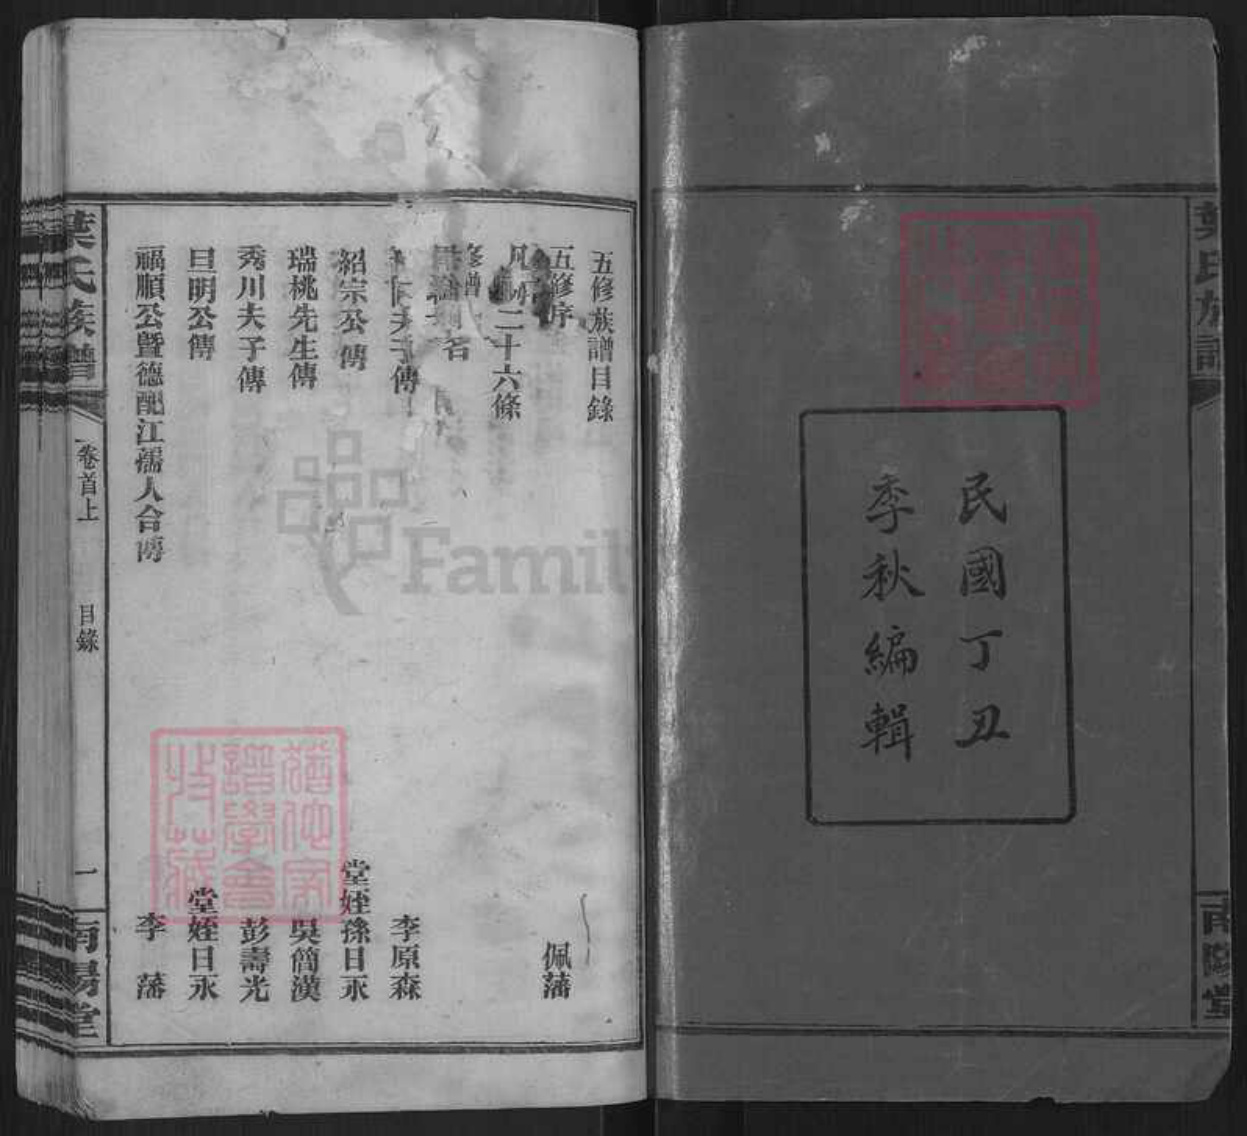 民國丁丑
季秋編輯
葉氏族譜
南陽堂
五修族譜目錄
五修序 佩藩
凡例二十六條
修譜
名
夫子傳 李原森
紹宗公傳 堂姪孫日永
瑞桃先生傳 吳簡漢
秀川夫子傳 彭壽光
旦明公傳 堂姪日永
福順公暨德配江孺人合傳 李藩
葉氏族譜
卷首上
目錄
一
南陽堂
Famil